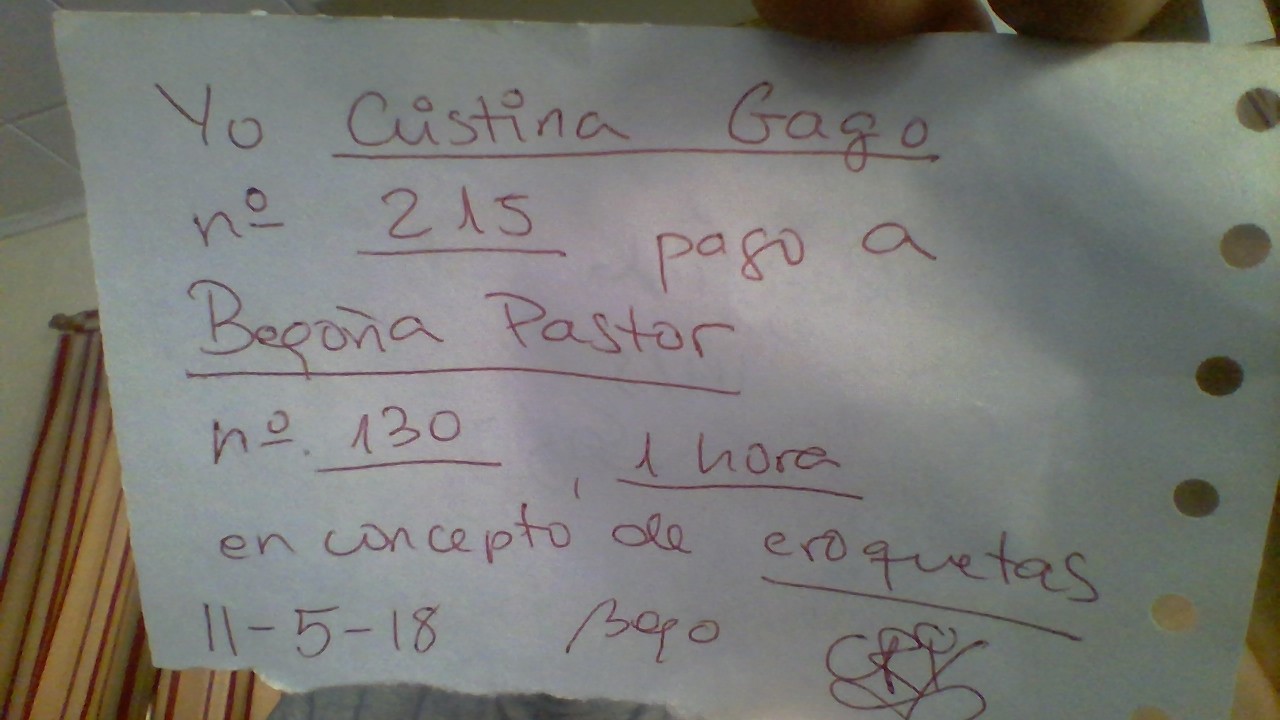 Yo Cristina Gago
nº 215 pago a
Begoña Pastor
nº. 130, 1 hora
en concepto de croquetas
11-5-18 Bego